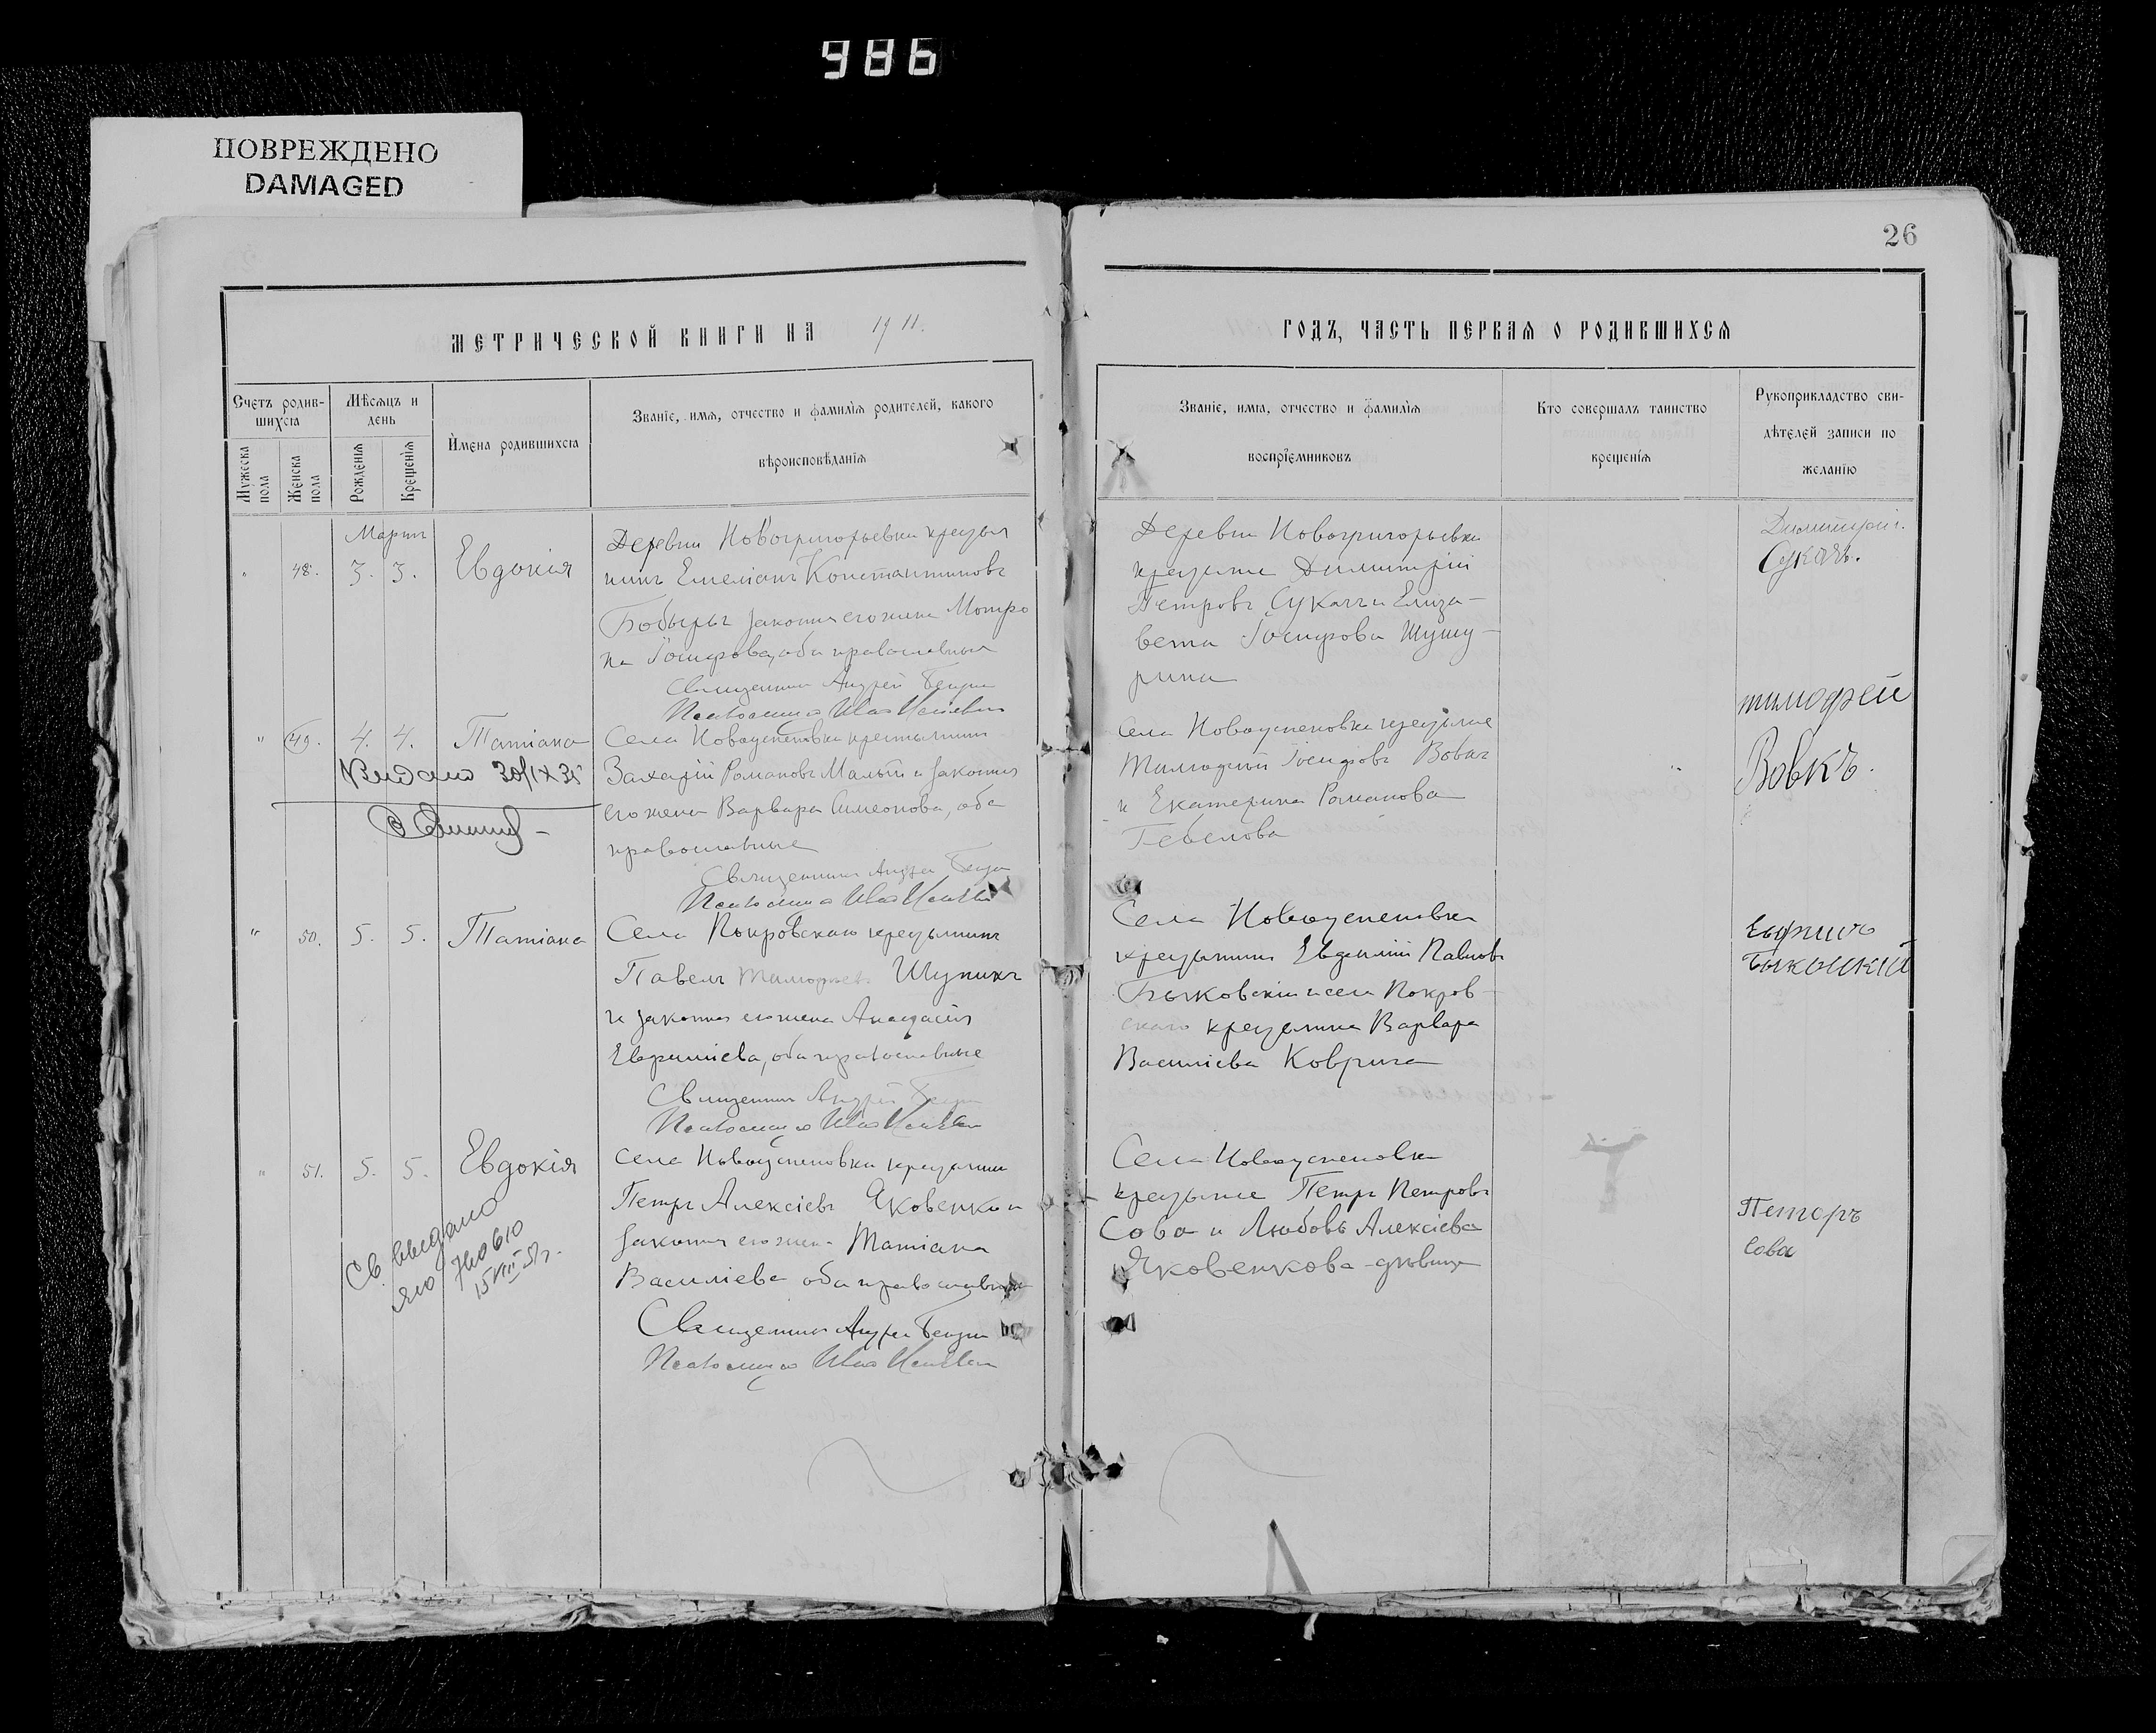 986
ПОВРЕЖДЕНО
DAMAGED
26
МЕТРИЧЕСКОЙ КНИГИ НА 1911.
ГОДЪ, ЧАСТЬ ПЕРВАЯ О РОДИВШИХСЯ
Счетъ родив-
шихся
Мужеска пола
Женска пола
Мѣсяцъ и
день
Рожденія
Крещенія
Имена родившихся
Званіе, имя, отчество и фамилія родителей, какого
вѣроисповѣданія
Званіе, имя, отчество и фамилія
воспріемниковъ
Кто совершалъ таинство
крещенія
Рукоприкладство сви-
дѣтелей записи по
желанію
Мартъ
48. 3. 3. Евдокія
Деревни Новогригорьевки крестья
нинъ Емеліанъ Константиновъ
Бобырь законная его жена Мотро
на Іосифова, оба православные
Священникъ Андрей
Псаломщикъ
Деревни Новогригорьевки
крестьяне Димитрій
Петровъ Сукачъ и Елиза-
вета Іосифова Шушу-
рина
Димитрий
Сукачъ.
49. 4. 4. Татіана
Видано 30/IX 35
Села Новоуспеновки крестьянинъ
Захарій Романовъ Малый и законная
его жена Варвара Симеонова, оба
православные
Священникъ Андрей
Псаломщикъ
Села Новоуспеновки крестьяне
Тимофей Іосифовъ Вовкъ
и Екатерина Романова
тимофей
Вовкъ.
50. 5. 5. Татіана
Села Покровскаго крестьянинъ
Павелъ Тимофеевъ Шупикъ
и законная его жена Анастасія
Евфиміева, оба православные
Священникъ Андрей
Псаломщикъ
Села Новоуспеновки
крестьянинъ Павловъ
Быковскій и села Покров-
скаго крестьянка Варвара
Василіева Коврига
51. 5. 5. Евдокія
Св. выдано
15 VIII 51г.
Села Новоуспеновки крестьянинъ
Петръ Алексіевъ Яковенко и
законная его жена Татіана
Василіева оба православные
Священникъ Андрей
Псаломщикъ
Села Новоуспеновки
крестьяне Петръ Петровъ
Сова и Любовь Алексіева
Яковенкова - дѣвица
Петръ
Сова